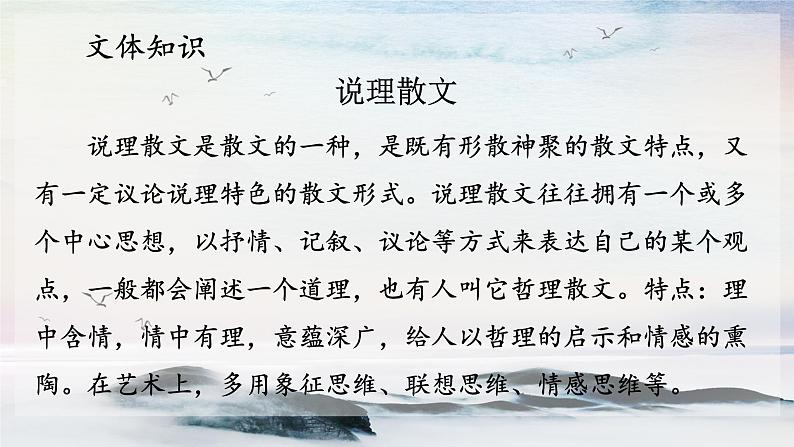 文体知识
说理散文
说理散文是散文的一种，是既有形散神聚的散文特点，又
有一定议论说理特色的散文形式。说理散文往往拥有一个或多
个中心思想，以抒情、记叙、议论等方式来表达自己的某个观
点，一般都会阐述一个道理，也有人叫它哲理散文。特点：理
中含情，情中有理，意蕴深广，给人以哲理的启示和情感的熏
陶。在艺术上，多用象征思维、联想思维、情感思维等。